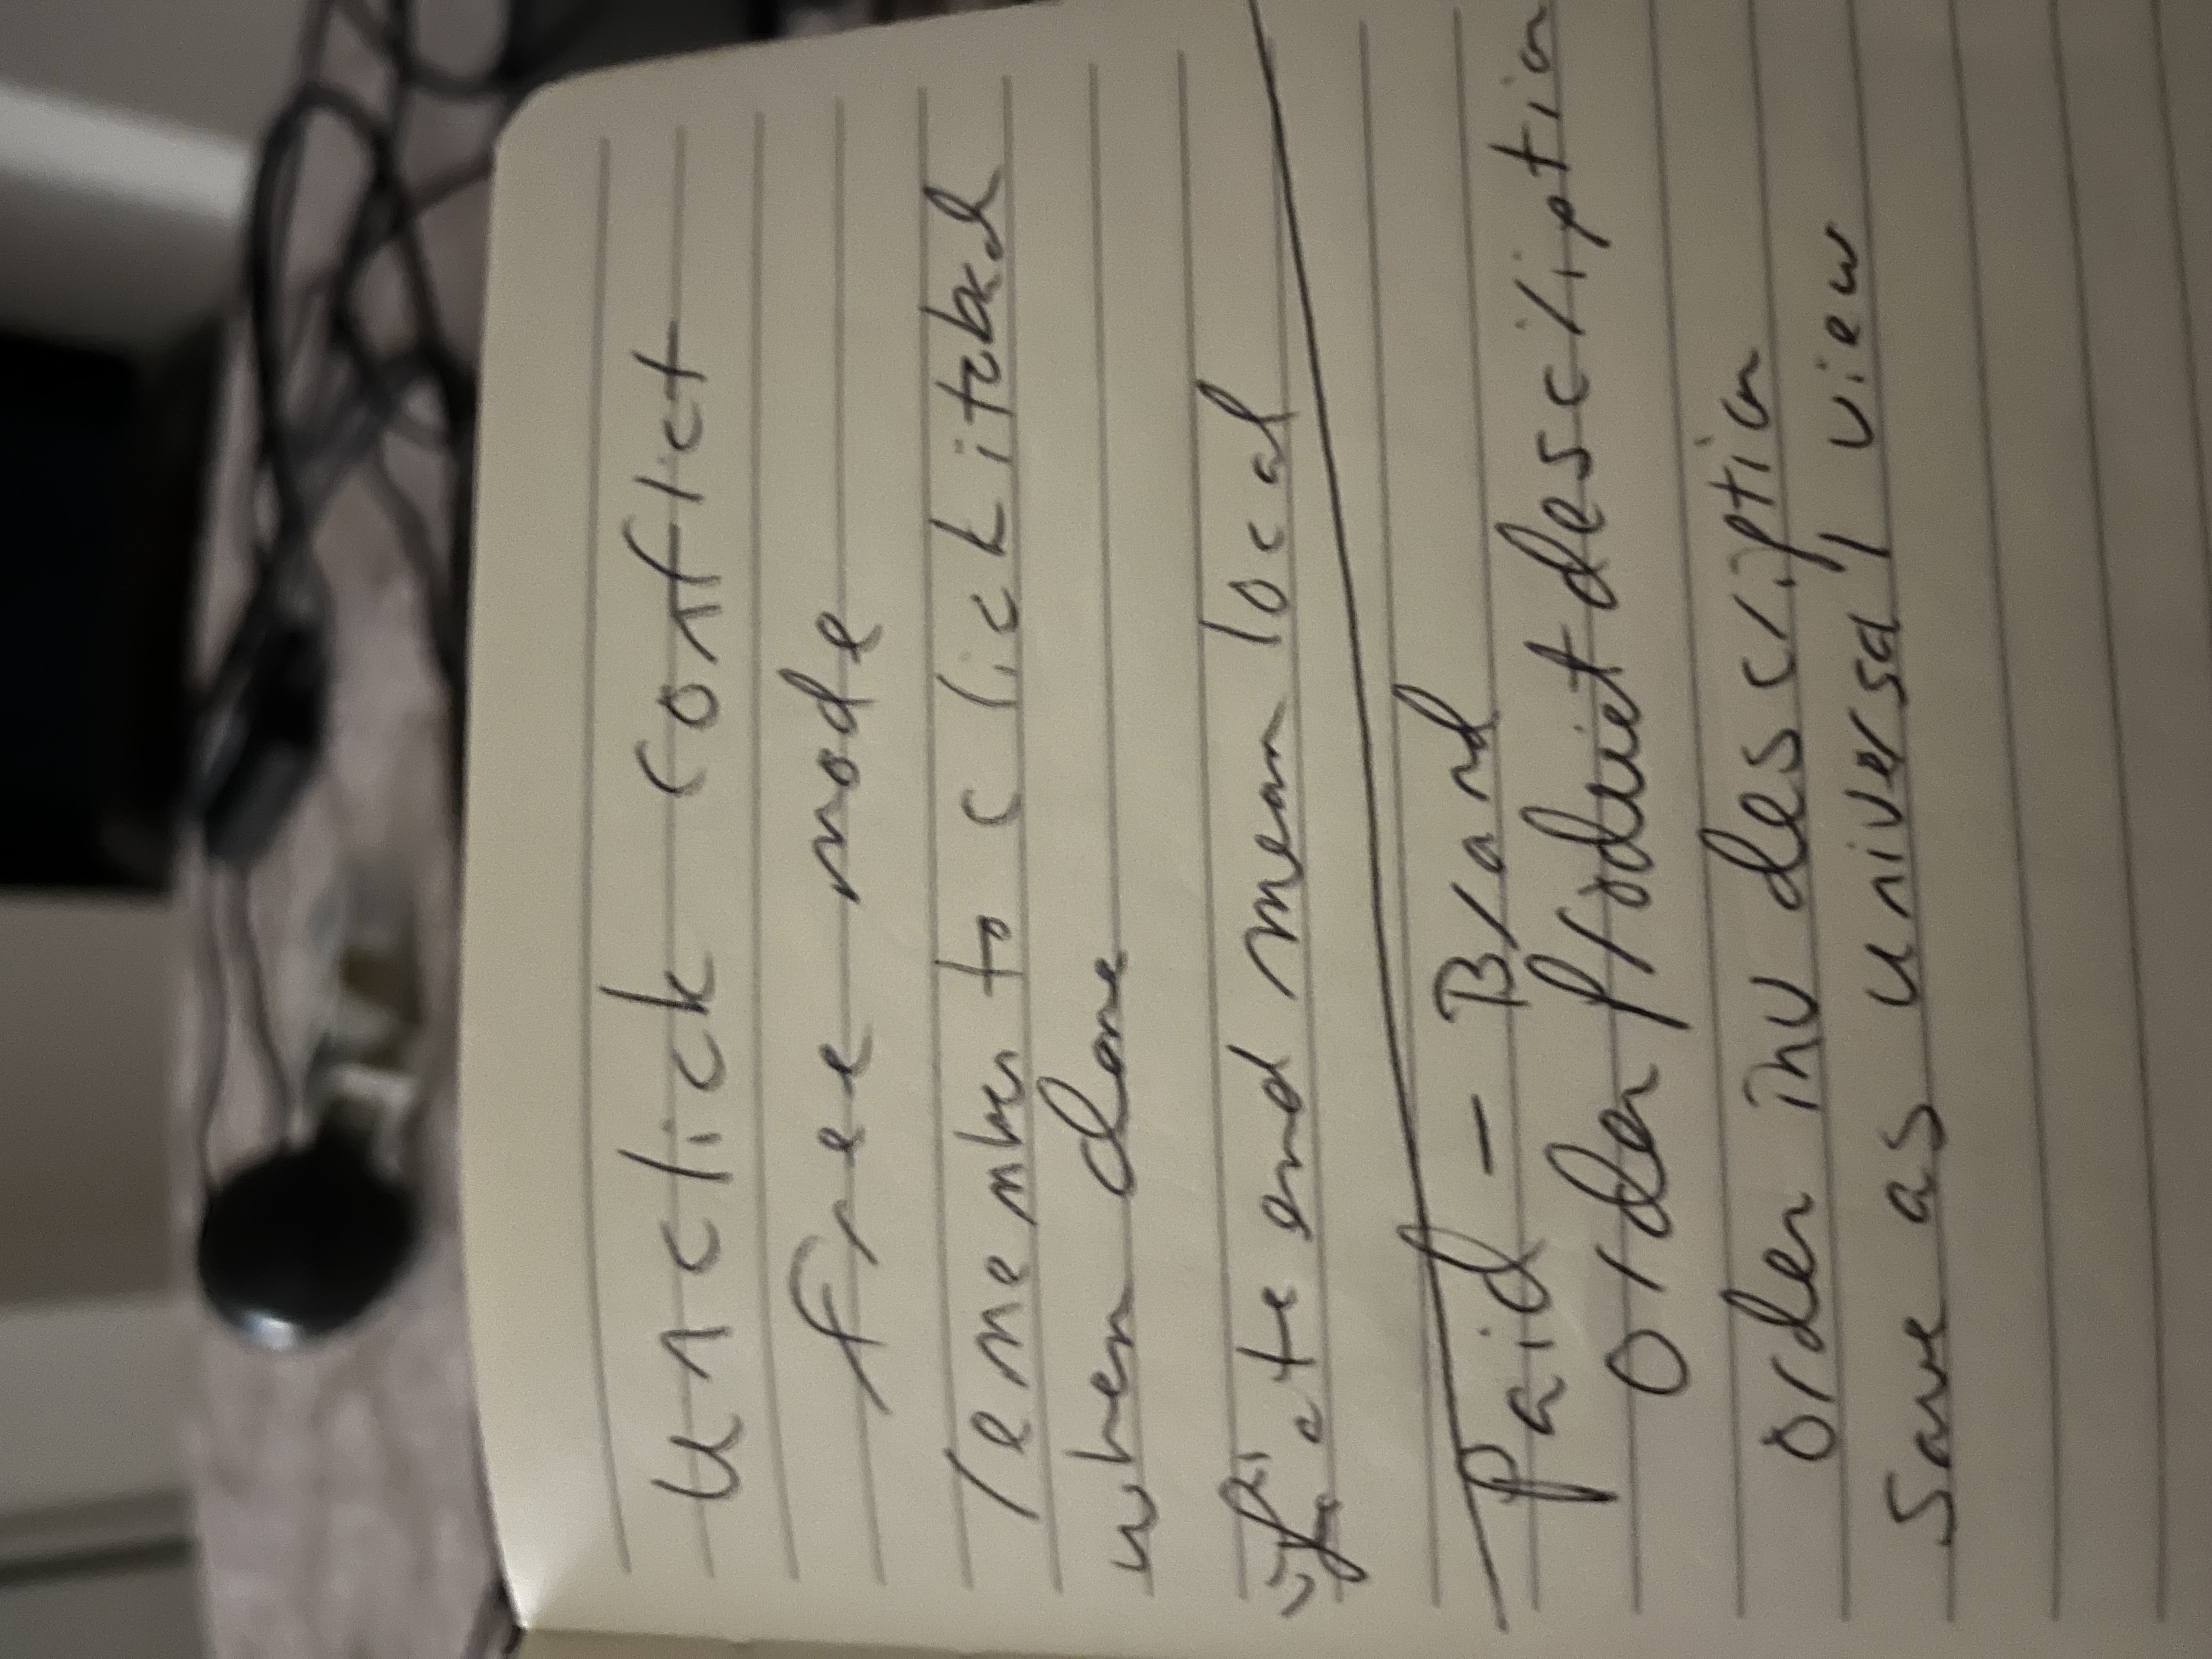 unclick conflict
free mode
remember to click it back
when done
end mean local
Paid - Brand
order product description
order inv description
save as universal view